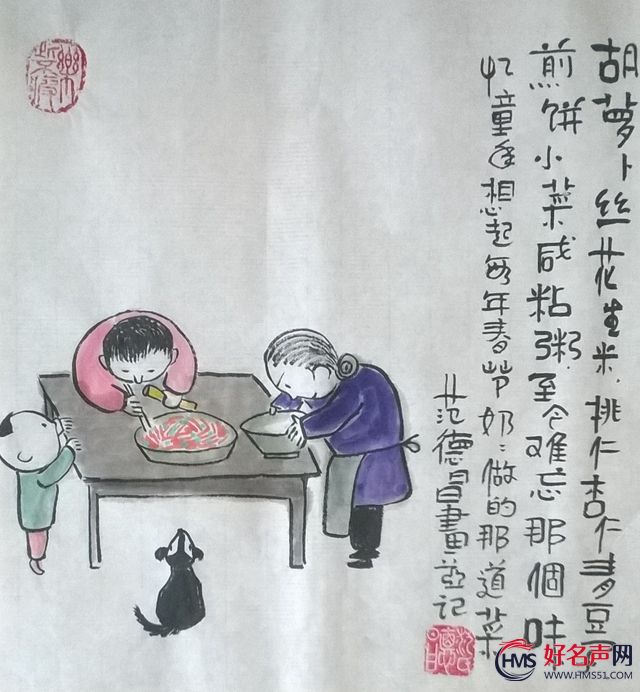 胡萝卜丝花生米.桃仁杏仁豆
煎饼小菜咸粘粥.至今难忘那個味
忆童年想起每年春节奶〻做的那道菜
范德昌畫並记
HMS 好名声网
WWW.HMS51.COM